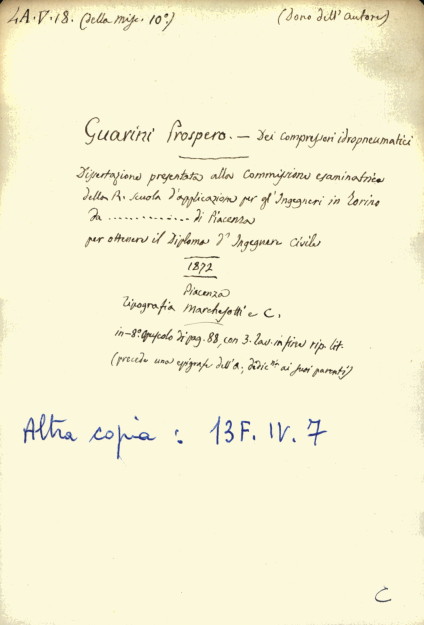 4A.V.18. (della misc. 10ª) (Dono dell'autore)
Guarini Prospero. — Dei compressori idropneumatici
Dissertazione presentata alla Commissione esaminatrice
della R. scuola d'applicazione per gl'Ingegneri in Torino
da ............. di Piacenza
per ottenere il Diploma d'Ingegnere Civile
1872
Piacenza
Tipografia Marchesotti e C.
in-8º. Opuscolo di pag. 88, con 3. tav. in fine rip. lit.
(precede una epigrafe dell'A; dedic.ª ai suoi parenti)
Altra copia : 13F. IV. 7
C